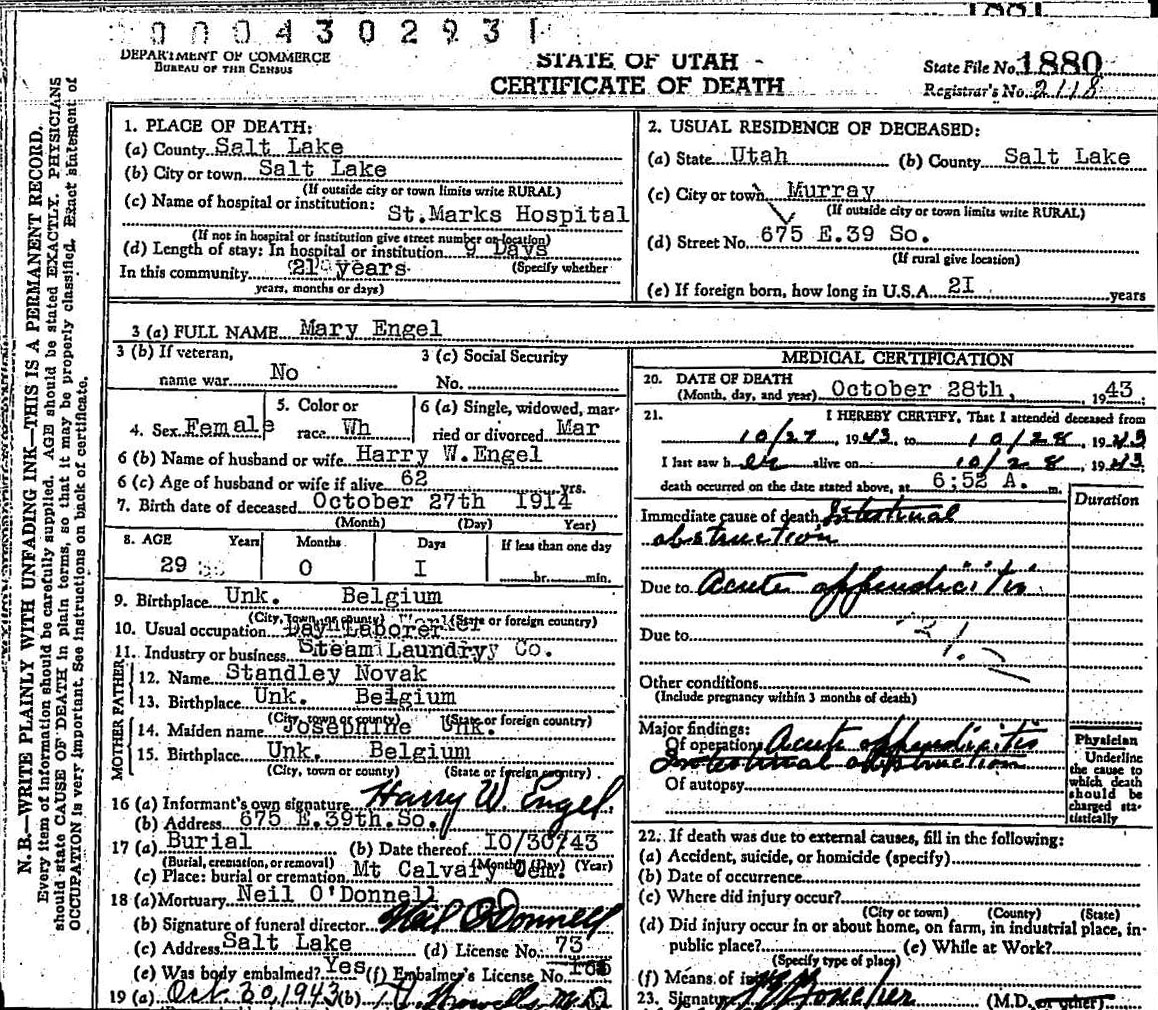 1881
0004302931
DEPARTMENT OF COMMERCE
BUREAU OF THE CENSUS
STATE OF UTAH -
CERTIFICATE OF DEATH
State File No. 1880
Registrar's No. 2118
N. B.—WRITE PLAINLY WITH UNFADING INK—THIS IS A PERMANENT RECORD.
Every item of information should be carefully supplied. AGE should be stated EXACTLY. PHYSICIANS
should state CAUSE OF DEATH in plain terms, so that it may be properly classified. Exact statement of
OCCUPATION is very important. See instructions on back of certificate.
1. PLACE OF DEATH:
(a) County Salt Lake
(b) City or town Salt Lake
(If outside city or town limits write RURAL)
(c) Name of hospital or institution:
St.Marks Hospital
(If not in hospital or institution give street number or location)
(d) Length of stay: In hospital or institution 9 Days
In this community 21 years (Specify whether
years, months or days)
2. USUAL RESIDENCE OF DECEASED:
(a) State Utah (b) County Salt Lake
(c) City or town Murray
(If outside city or town limits write RURAL)
(d) Street No. 675 E.39 So.
(If rural give location)
(e) If foreign born, how long in U.S.A. 2I years
3 (a) FULL NAME Mary Engel
3 (b) If veteran,
name war No
3 (c) Social Security
No.
4. Sex Female
5. Color or
race Wh
6 (a) Single, widowed, mar-
ried or divorced Mar
6 (b) Name of husband or wife Harry W.Engel
6 (c) Age of husband or wife if alive 62 yrs.
7. Birth date of deceased October 27th 1914
(Month) (Day) Year)
8. AGE Years Months Days If less than one day
29 0 I hr. min.
9. Birthplace Unk. Belgium
(City, town or county) (State or foreign country)
10. Usual occupation Day Laborer
11. Industry or business Steam Laundryy Co.
FATHER
12. Name Standley Novak
13. Birthplace Unk. Belgium
(City, town or county) (State or foreign country)
MOTHER
14. Maiden name Josephine Unk.
15. Birthplace Unk. Belgium
(City, town or county) (State or foreign country)
16 (a) Informant's own signature Harry W. Engel
(b) Address 675 E.39th.So.
17 (a) Burial (b) Date thereof IO/30/43
(Burial, cremation, or removal) (Month) (Day) (Year)
(c) Place: burial or cremation Mt Calvary Cem.
18 (a) Mortuary Neil O'Donnell
(b) Signature of funeral director Neil O'Donnell
(c) Address Salt Lake (d) License No. 73
(e) Was body embalmed? Yes (f) Embalmer's License No.
19 (a) Oct 30, 1943 (b) M.D.
MEDICAL CERTIFICATION
20. DATE OF DEATH
(Month, day, and year) October 28th, 1943
21. I HEREBY CERTIFY, That I attended deceased from
10/27, 1943, to 10/28, 1943
I last saw her alive on 10/28, 1943,
death occurred on the date stated above, at 6:52 A. m.
Duration
Immediate cause of death Intestinal
obstruction
Due to Acute appendicitis
Due to
Other conditions
(Include pregnancy within 3 months of death)
Major findings:
Of operation Acute appendicitis
Intestinal obstruction
Of autopsy
Physician
Underline
the cause to
which death
should be
charged sta-
tistically
22. If death was due to external causes, fill in the following:
(a) Accident, suicide, or homicide (specify)
(b) Date of occurrence
(c) Where did injury occur?
(City or town) (County) (State)
(d) Did injury occur in or about home, on farm, in industrial place, in-
public place? (e) While at Work?
(Specify type of place)
(f) Means of
23. Signature (M.D. or other)